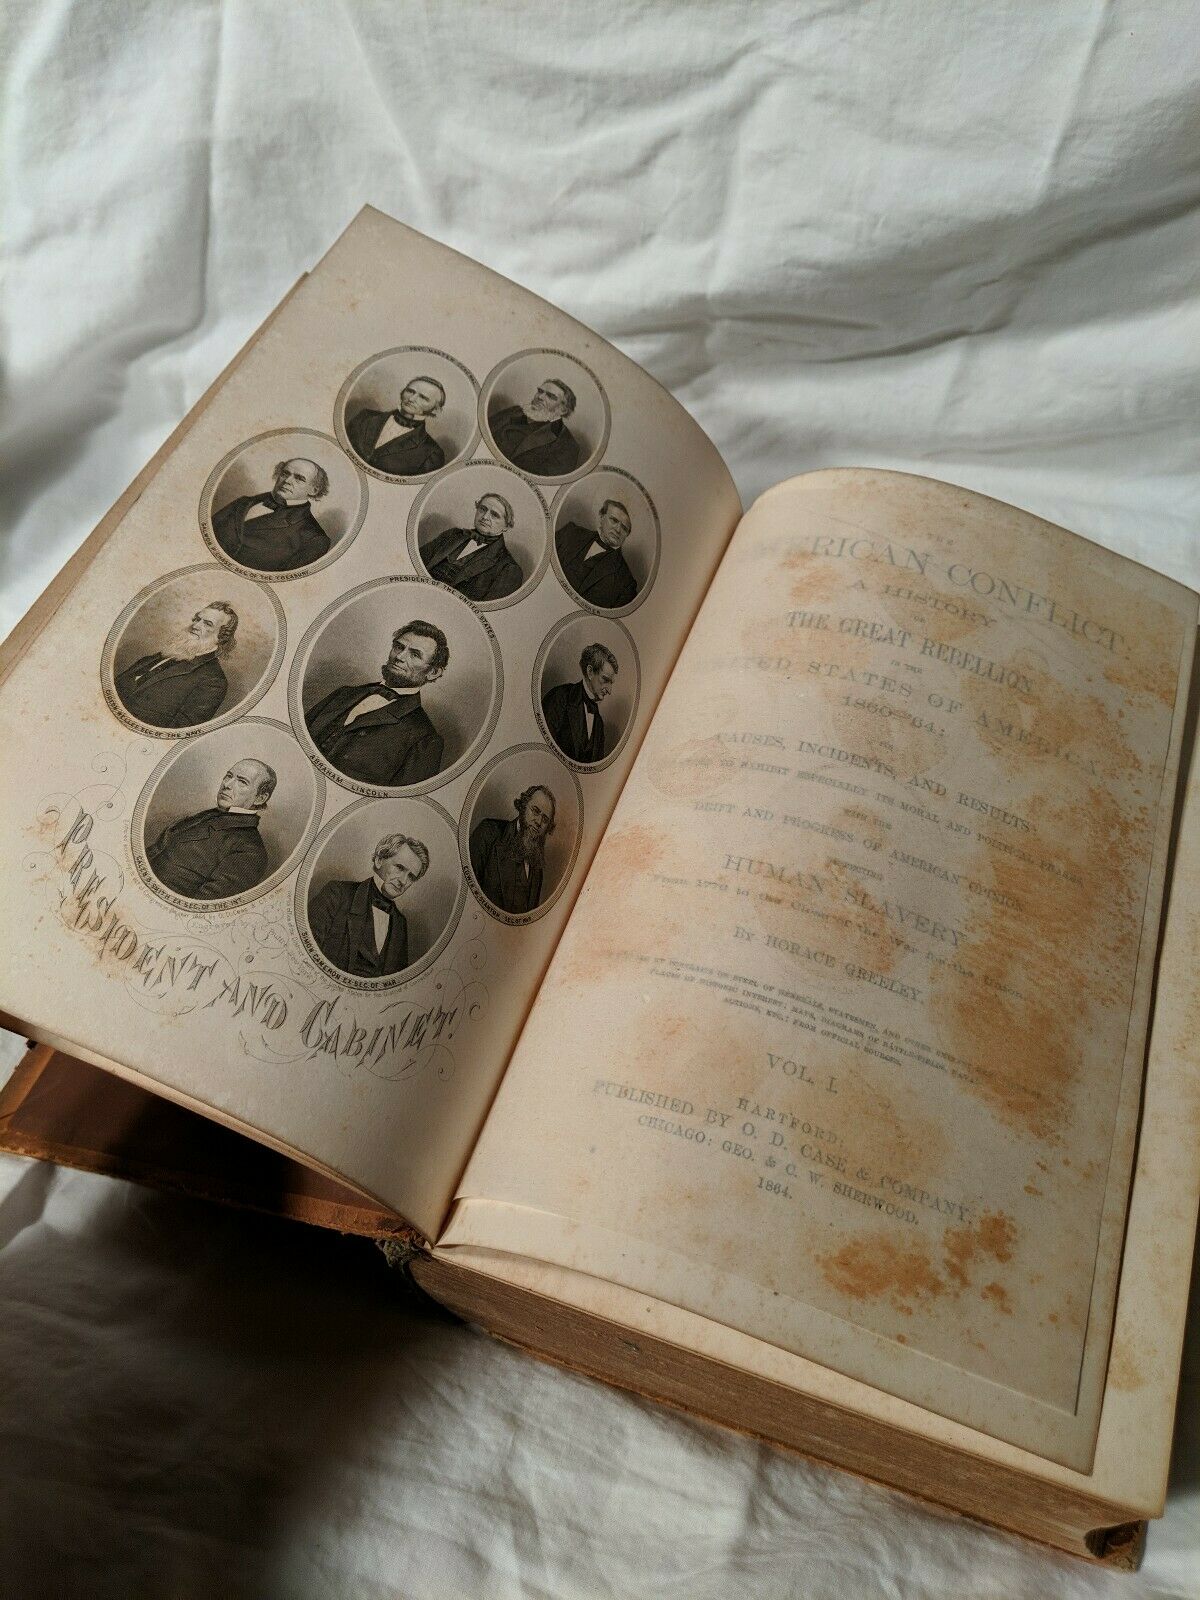 POST. MASTER
MONTGOMERY BLAIR.
EDWARD BATES
HANNIBAL HAMLIN VICE PRESIDENT
SALMON P. CHASE SEC. OF THE TREASURY.
PRESIDENT OF THE UNITED STATES.
ABRAHAM LINCOLN.
GIDEON WELLES SEC. OF THE NAVY.
CALEB B. SMITH EX SEC. OF THE INT.
SIMON CAMERON EX SEC. OF WAR.
EDWIN M. STANTON, SEC. OF WAR
PRESIDENT AND CABINET.
THE
AMERICAN CONFLICT:
A HISTORY
OF
THE GREAT REBELLION
IN THE
UNITED STATES OF AMERICA,
1860-'64:
ITS
CAUSES, INCIDENTS, AND RESULTS:
TO EXHIBIT ESPECIALLY ITS MORAL AND POLITICAL PHASES,
WITH THE
DRIFT AND PROGRESS OF AMERICAN OPINION
RESPECTING
HUMAN SLAVERY
From 1776 to the Close of the War for the Union.
BY HORACE GREELEY.
PORTRAITS ON STEEL OF GENERALS, STATESMEN, AND OTHER
PLACES OF HISTORIC INTEREST; MAPS, DIAGRAMS OF BATTLE-FIELDS, NAVAL
ACTIONS, ETC.; FROM OFFICIAL SOURCES.
VOL. I.
HARTFORD:
PUBLISHED BY O. D. CASE & COMPANY,
CHICAGO: GEO. & C. W. SHERWOOD.
1864.